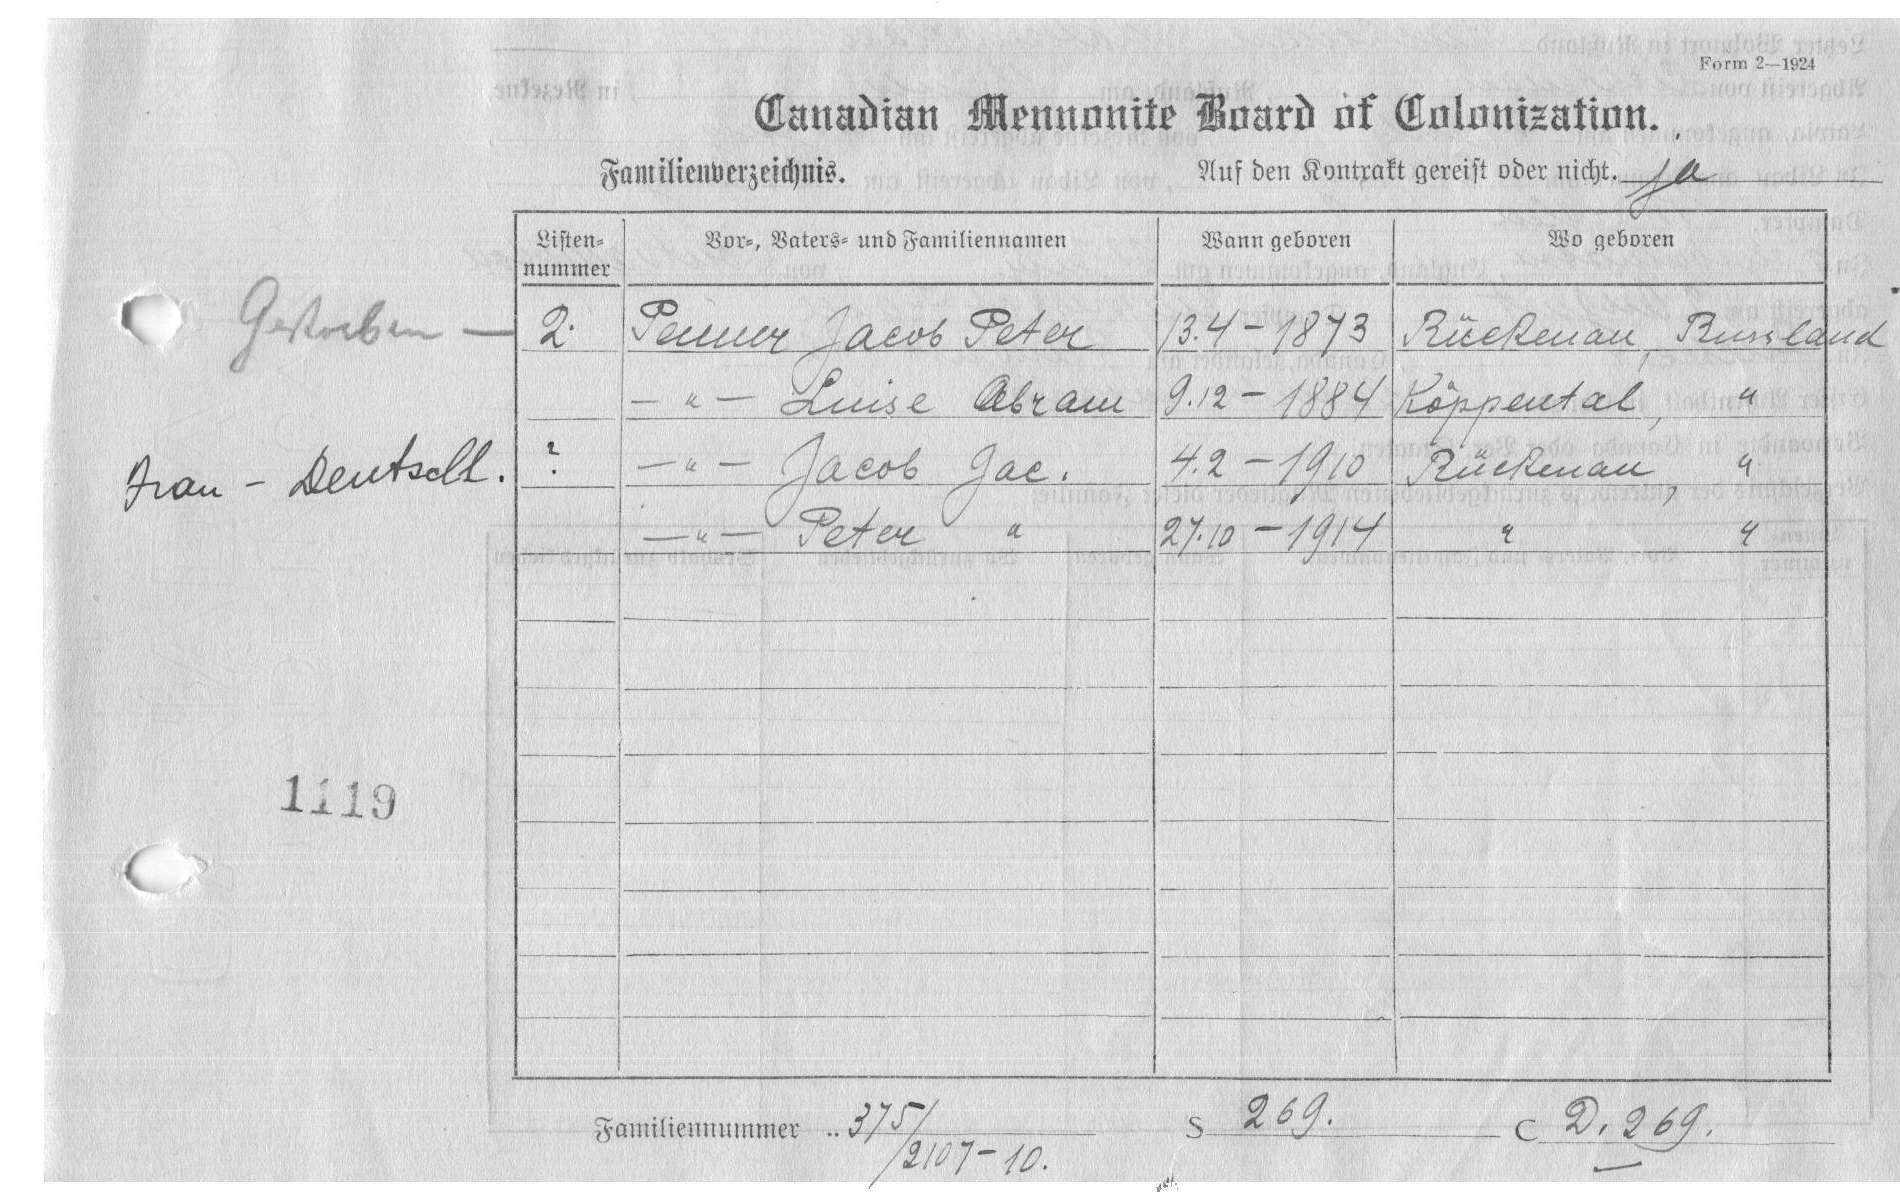 Form 2—1924
Canadian Mennonite Board of Colonization.
Familienverzeichnis. Auf den Kontrakt gereist oder nicht. ja
Listen-nummer Vor-, Vaters- und Familiennamen Wann geboren Wo geboren
Gestorben — 2. Penner Jacob Peter 13.4-1873 Rückenau, Russland
— " — Luise Abram 9.12-1884 Köppental, "
Frau - Deutschl. ? — " — Jacob Jac. 4.2-1910 Rückenau, "
— " — Peter " 27.10-1914 " "
1119
Familiennummer 375/2107-10. S 269. C D. 269.